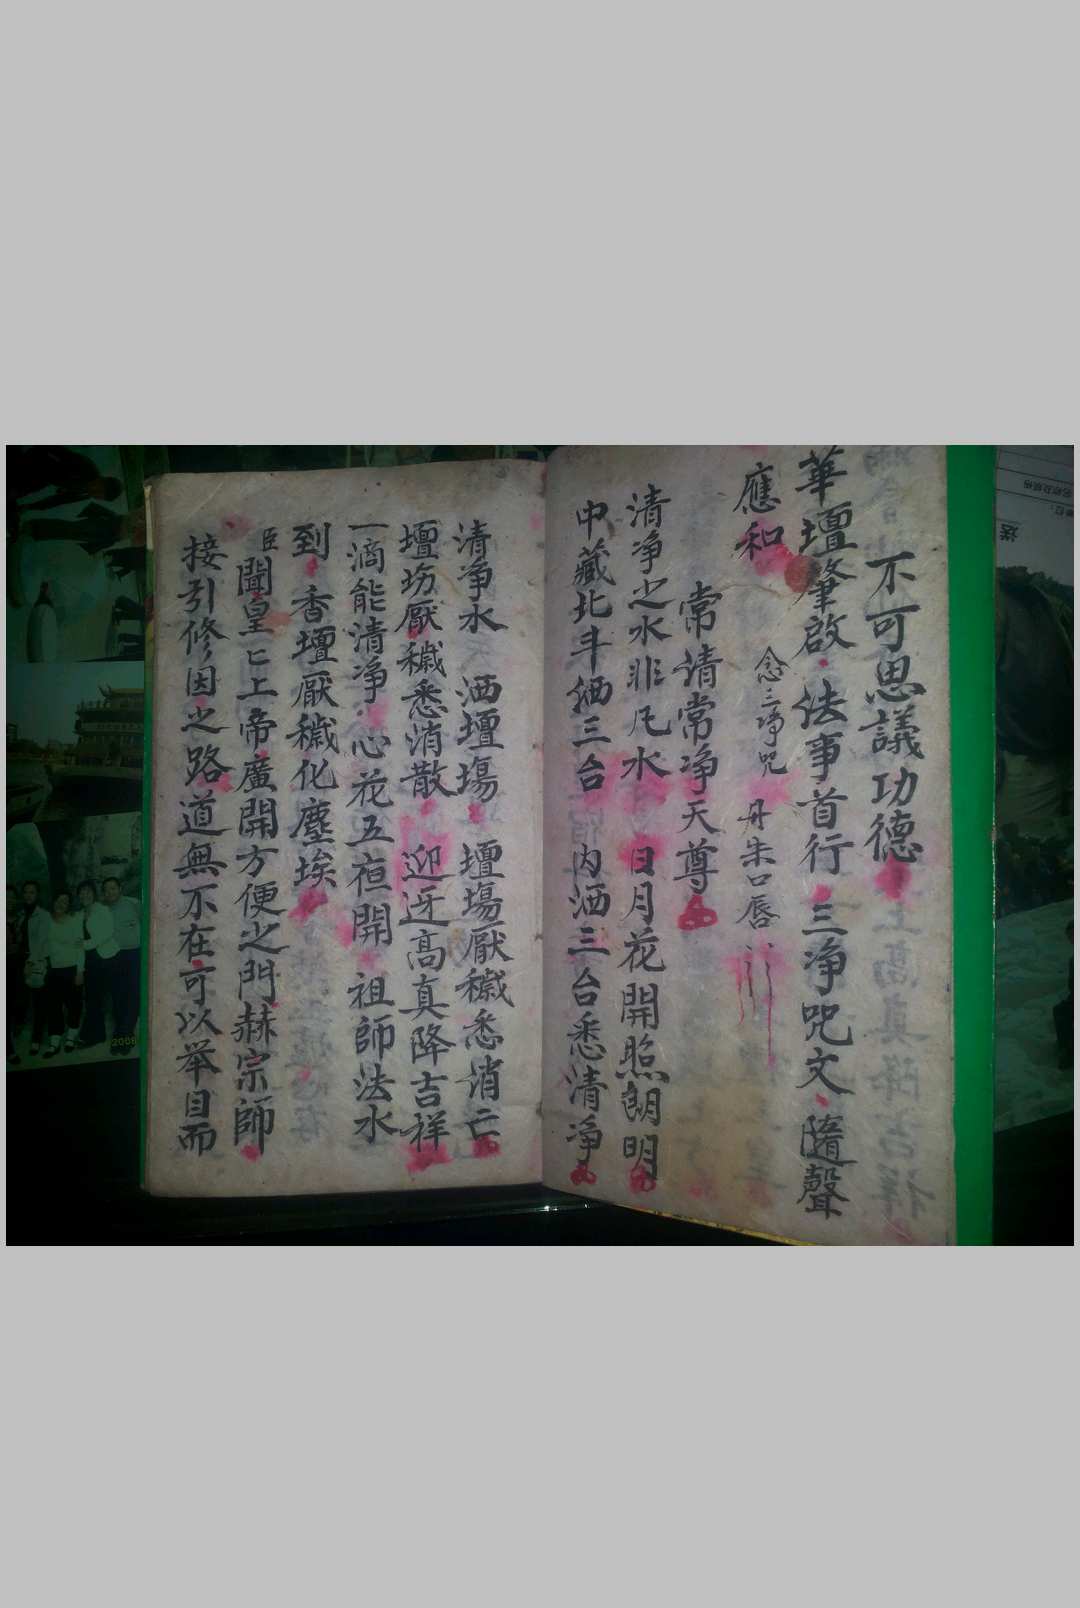 不可思議功德
華壇肇啟法事首行三淨咒文隨聲
應和
念三淨咒 丹朱口唇
常清常净天尊
清净之水非凡水日月花開照朗明
中藏北斗洒三台内洒三台悉清净
清净水 洒壇場 壇場厭穢悉消亡
壇場厭穢悉消散迎迓高真降吉祥
一滴能清净心花五夜開祖師法水
到香壇厭穢化塵埃
臣聞皇匕上帝廣開方便之門赫宗師
接引修因之路道無不在可以举目而
2008